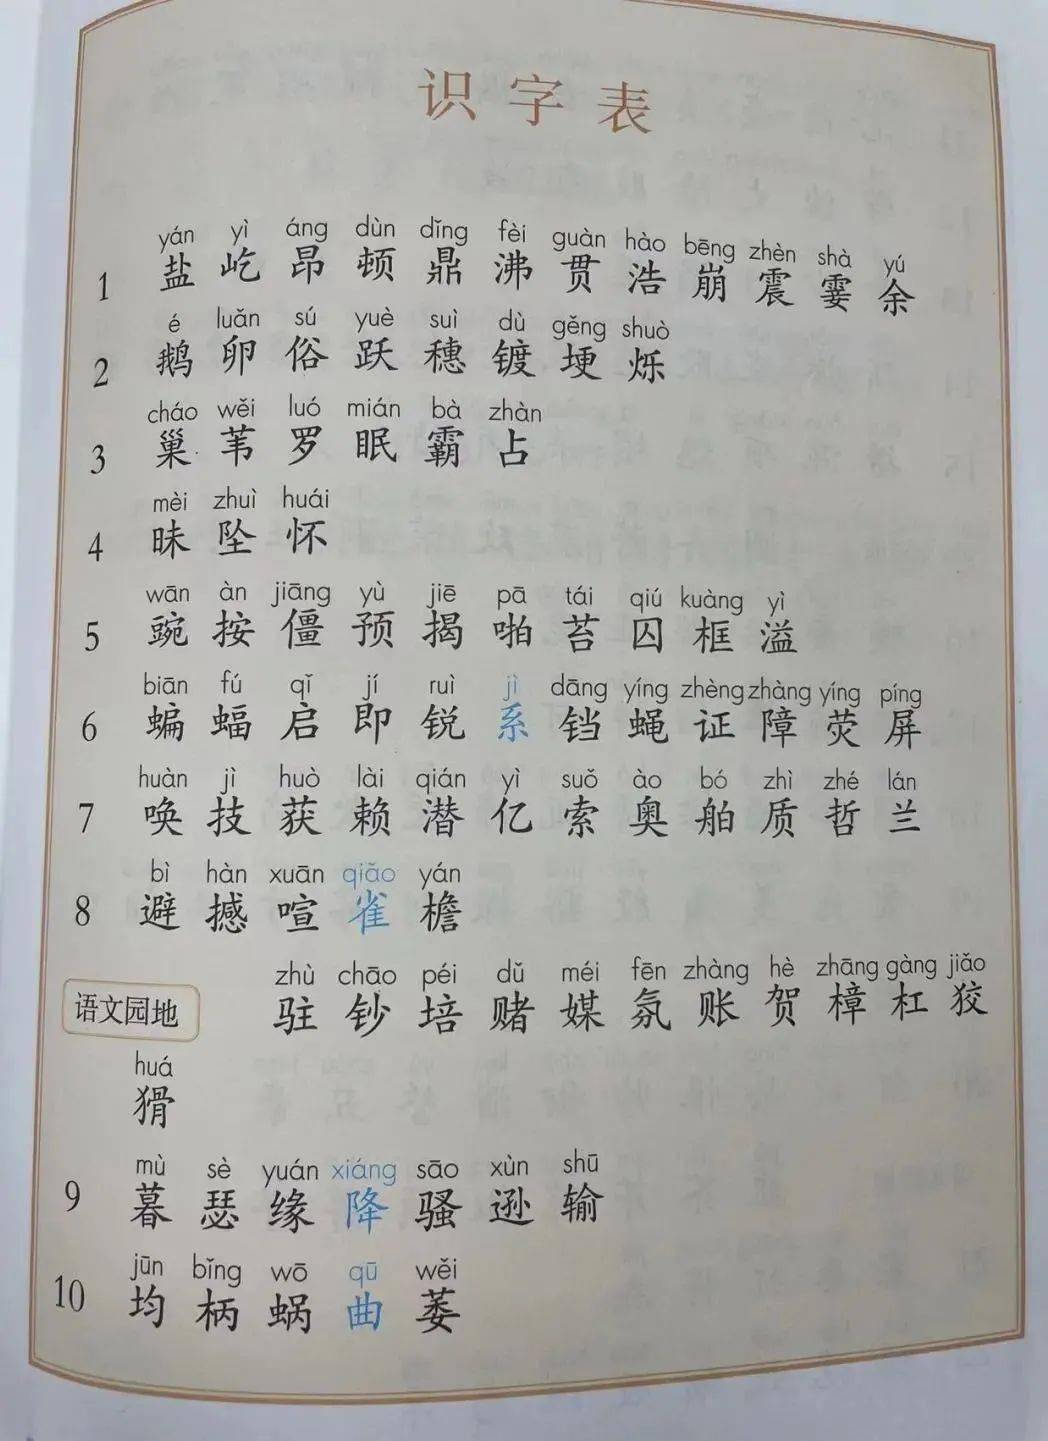 识字表
yán yì áng dùn dǐng fèi guàn hào bēng zhèn shà yú
1 盐 屹 昂 顿 鼎 沸 贯 浩 崩 震 霎 余
é luǎn sú yuè suì dù gěng shuò
2 鹅 卵 俗 跃 穗 镀 埂 烁
cháo wěi luó mián bà zhàn
3 巢 苇 罗 眠 霸 占
mèi zhuì huái
4 昧 坠 怀
wān àn jiāng yù jiē pā tái qiú kuàng yì
5 豌 按 僵 预 揭 啪 苔 囚 框 溢
biān fú qǐ jí ruì jì dāng yíng zhèng zhàng yíng píng
6 蝙 蝠 启 即 锐 系 铛 蝇 证 障 荧 屏
huàn jì huò lài qián yì suǒ ào bó zhì zhé lán
7 唤 技 获 赖 潜 亿 索 奥 舶 质 哲 兰
bì hàn xuān qiǎo yán
8 避 撼 喧 雀 檐
zhù chāo péi dǔ méi fēn zhàng hè zhāng gàng jiǎo
语文园地 驻 钞 培 赌 媒 氛 账 贺 樟 杠 狡
huá
猾
mù sè yuán xiáng sāo xùn shū
9 暮 瑟 缘 降 骚 逊 输
jūn bǐng wō qū wěi
10 均 柄 蜗 曲 萎